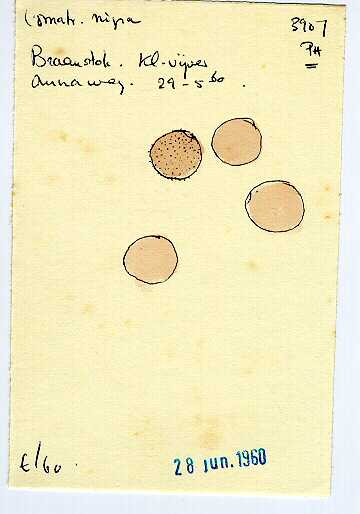 Comatr. nigra
3907
PH
Braamstok. Kl-vijver
Annaweg. 29-5-60.
E/60.
28 Jun. 1960